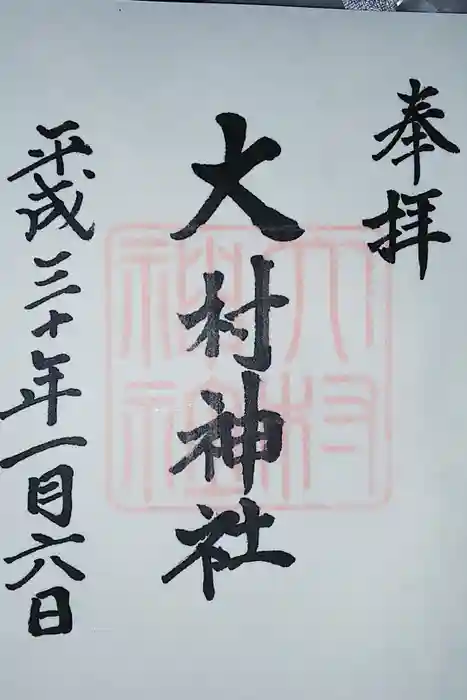 奉拝
大村神社
平成三十年一月六日
大村神社